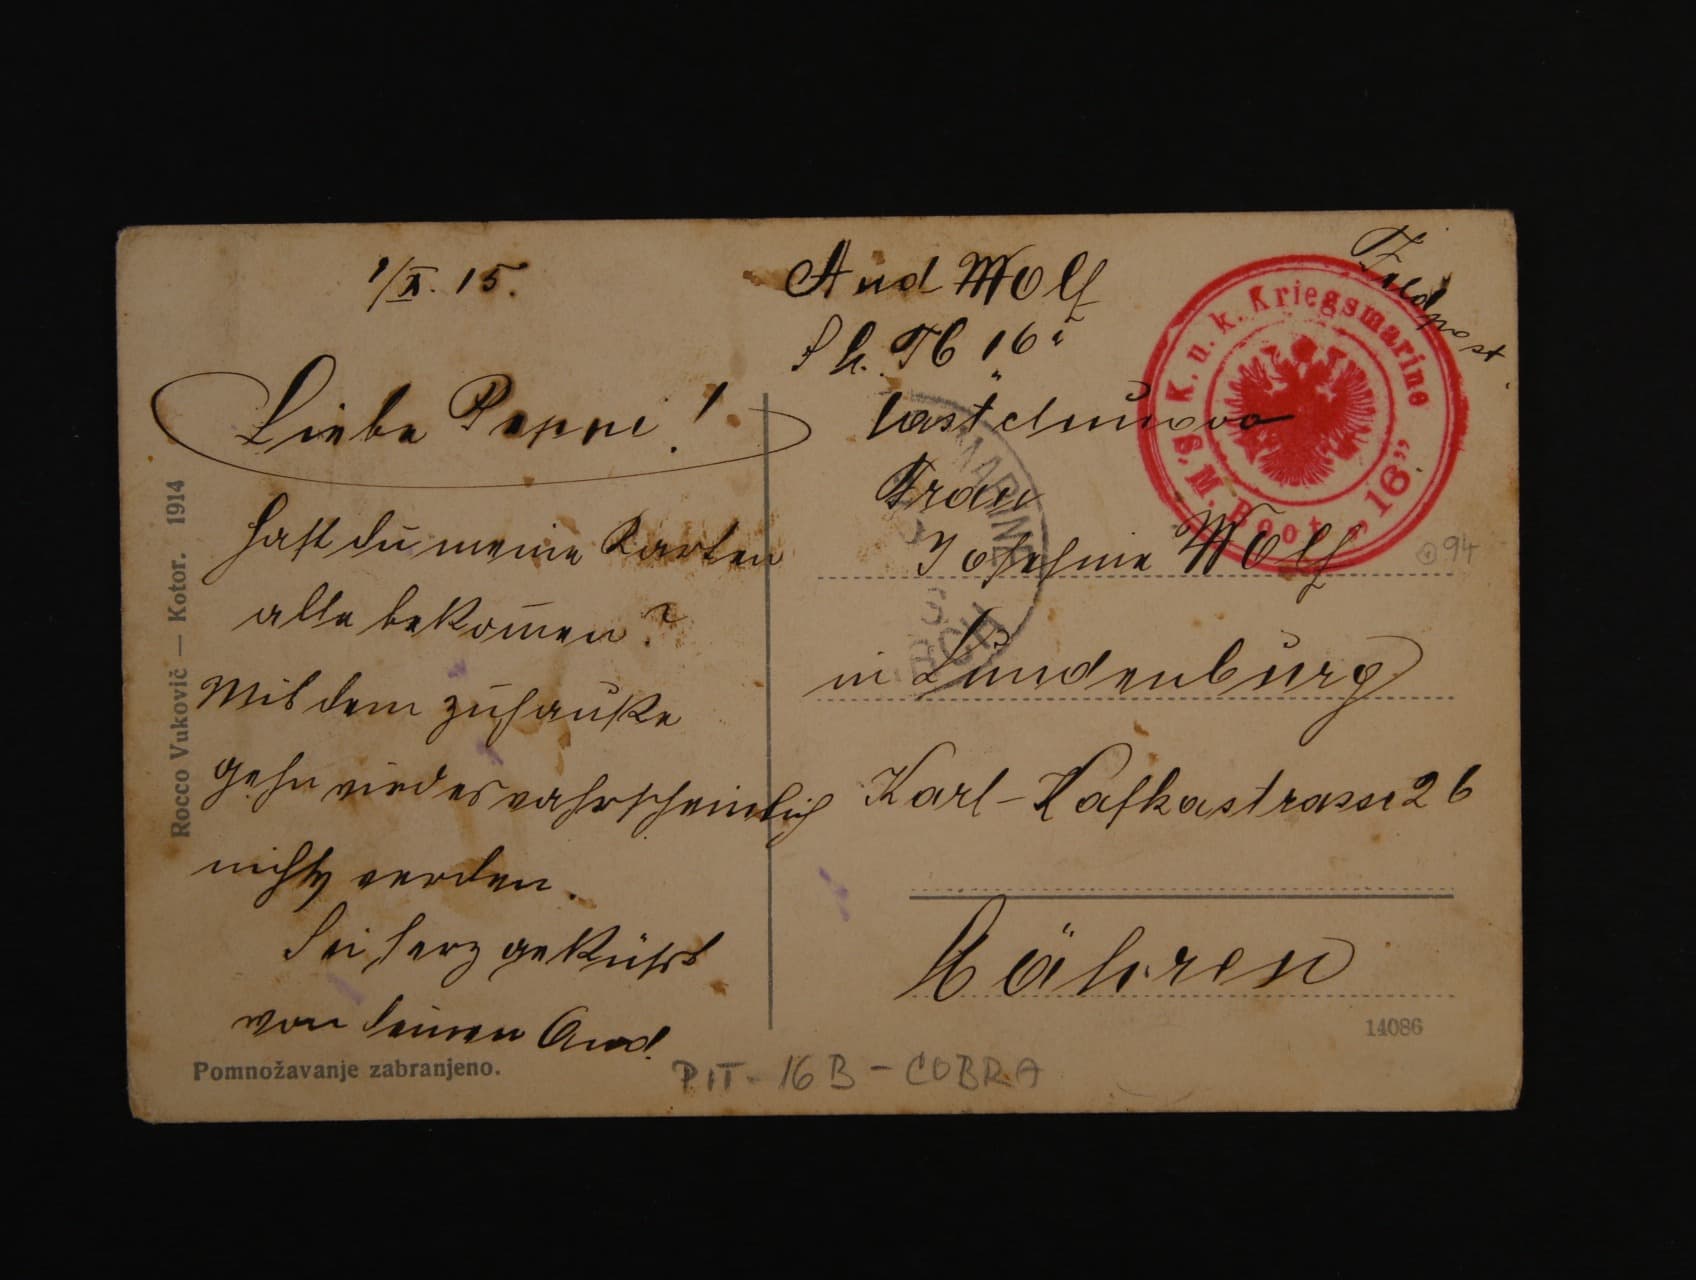 1/X. 15.
Liebe Peppi!
Hast du meine Karten
alle bekomen?
Mit dem zuhause
gehn wird es wahrscheinlich
nichts werden.
Sei herz geküßt
von deinen And.
And Wolf
Tb "16"
Castelnuovo
Feldpost.
K. u. k. Kriegsmarine
S. M. Boot „16”
MARINE
Frau
Josefine Wolf
in Lundenburg
Karl-Kafkastrasse 26
Mähren
94
14086
Rocco Vukovič — Kotor. 1914
Pomnožavanje zabranjeno.
PIT - 16B - COBRA